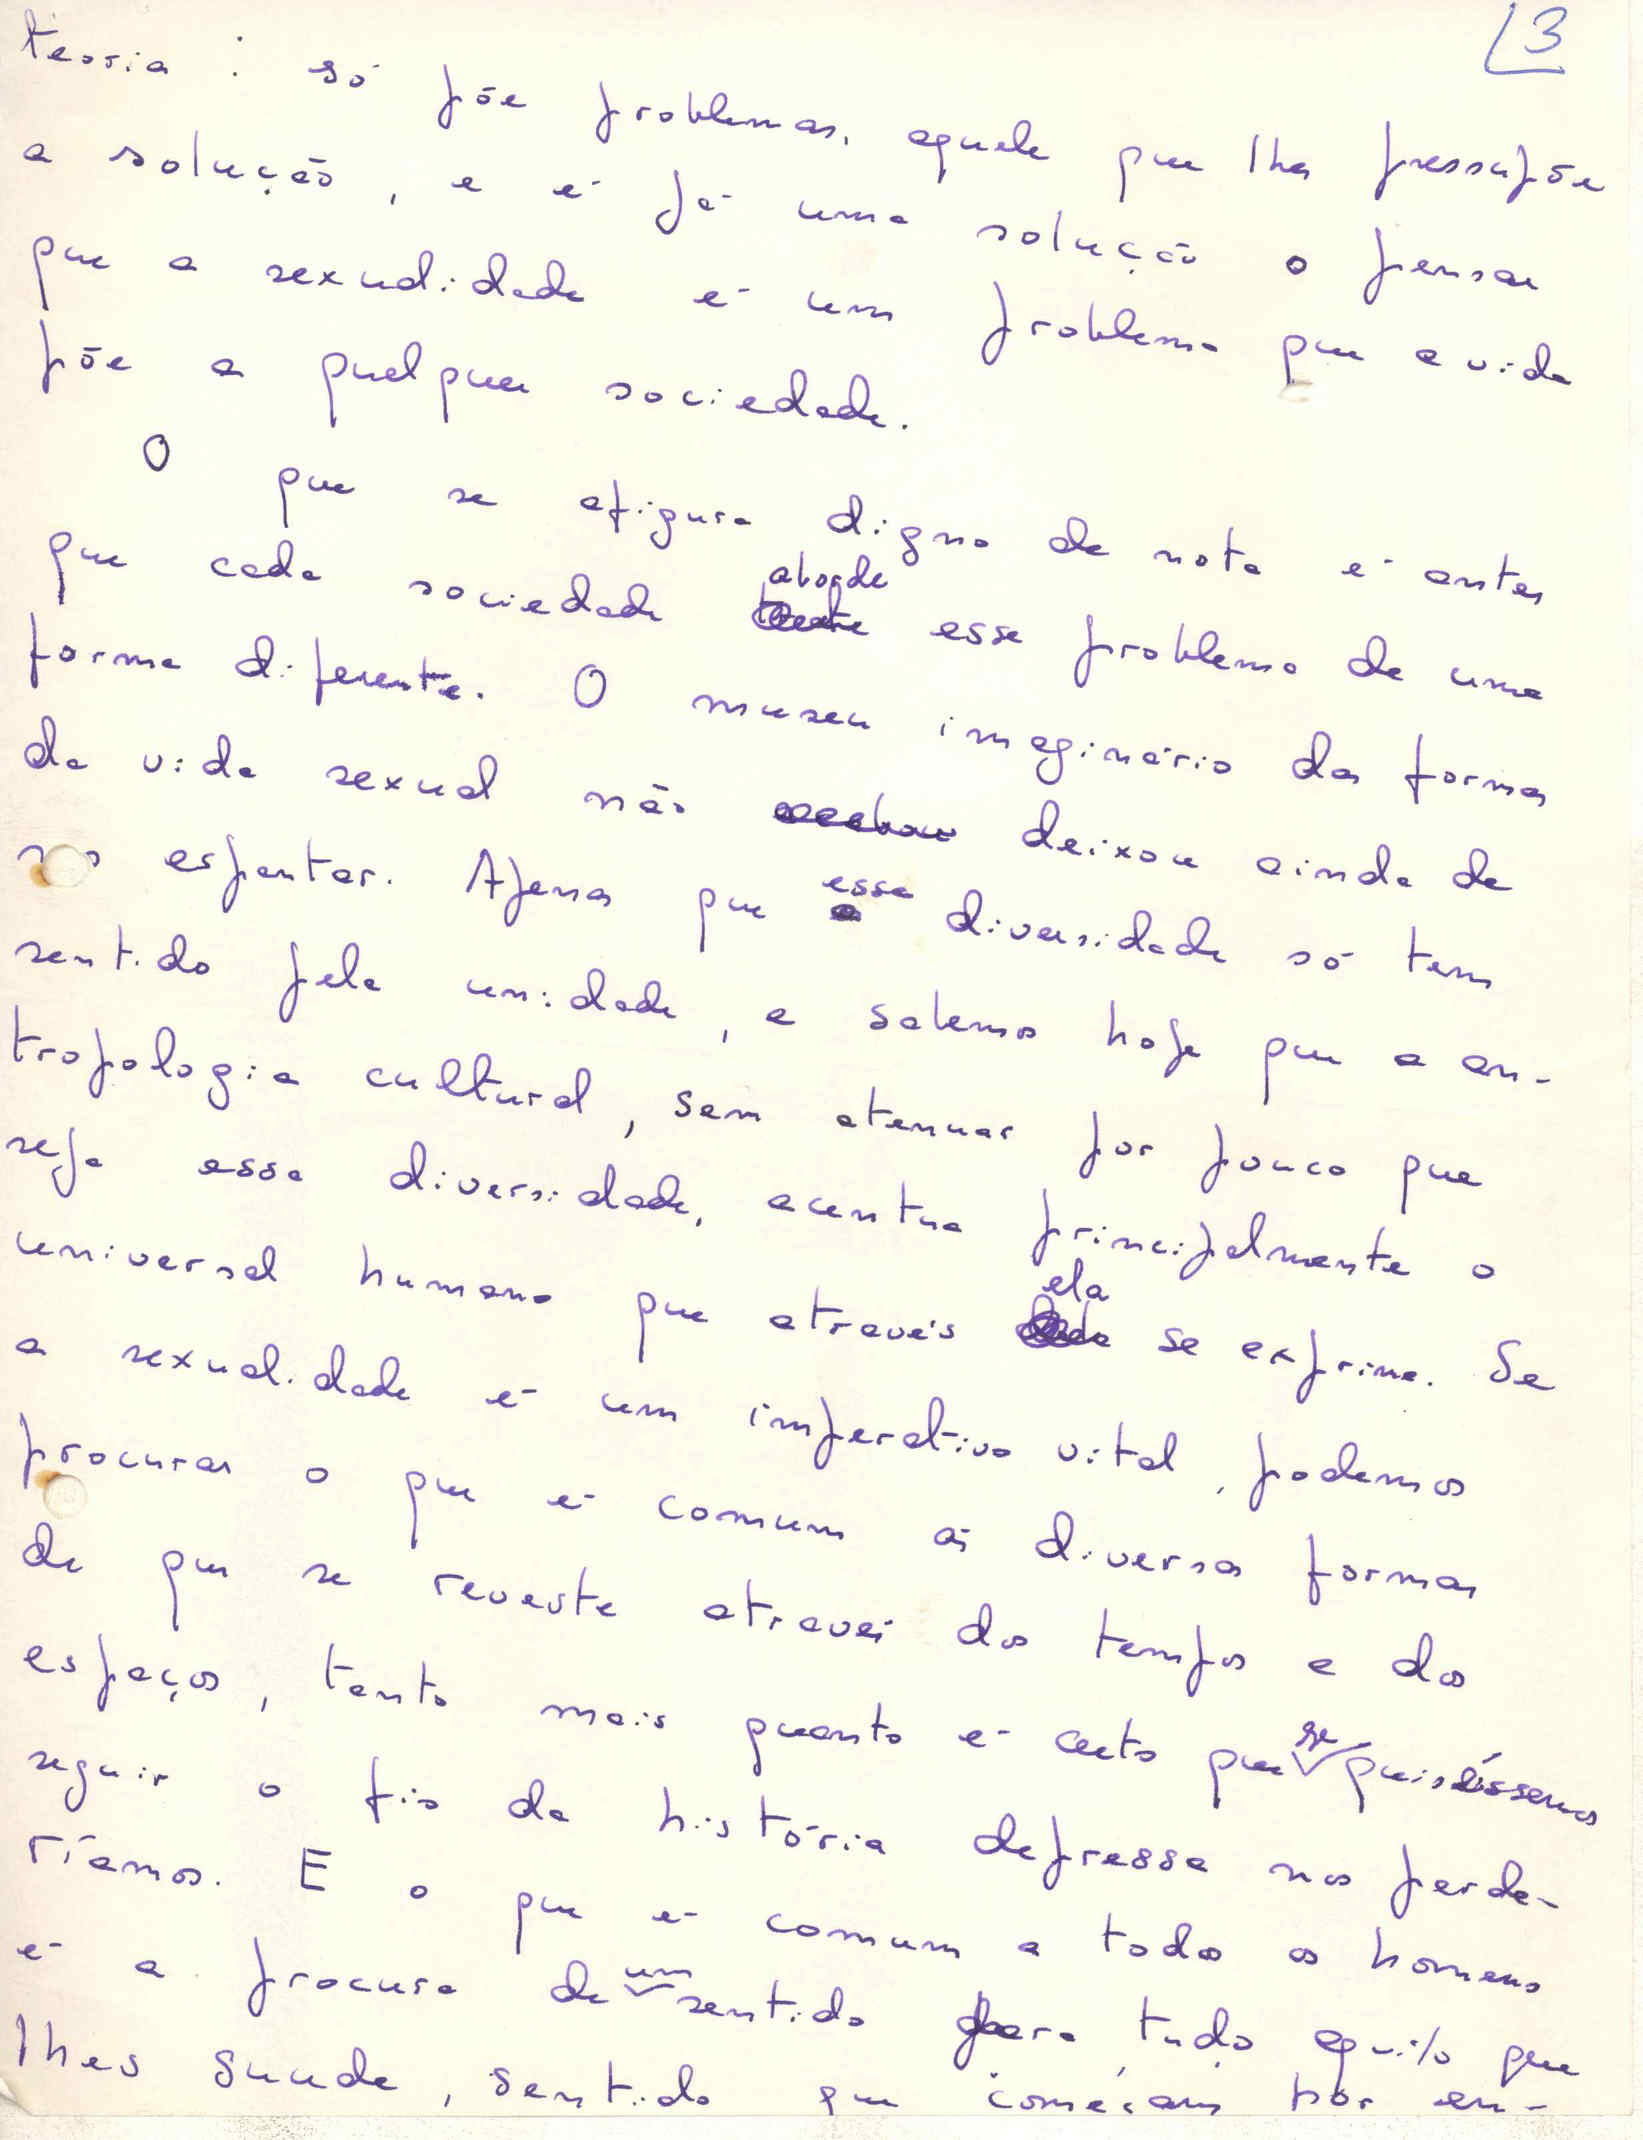 3
teoria: só põe problemas, aquele que lhes pressupõe
a solução, e é já uma solução o pensar
que a sexualidade é um problema que a vida
põe a qualquer sociedade.
O que se afigura digno de nota é antes
que cada sociedade aborde esse problema de uma
forma diferente. O museu imaginário das formas
da vida sexual não deixou ainda de
nos espantar. Apenas que essa diversidade só tem
sentido pela unidade, e sabemos hoje que a an-
tropologia cultural, sem atenuar por pouco que
seja essa diversidade, acentua principalmente o
universal humano que através dela se exprime. Se
a sexualidade é um imperativo vital, podemos
procurar o que é comum às diversas formas
de que se reveste através dos tempos e dos
espaços, tanto mais quanto é certo que se quiséssemos
seguir o fio da história depressa nos perde-
ríamos. E o que é comum a todos os homens
é a procura de um sentido para tudo aquilo que
lhes sucede, sentido que começam por en-